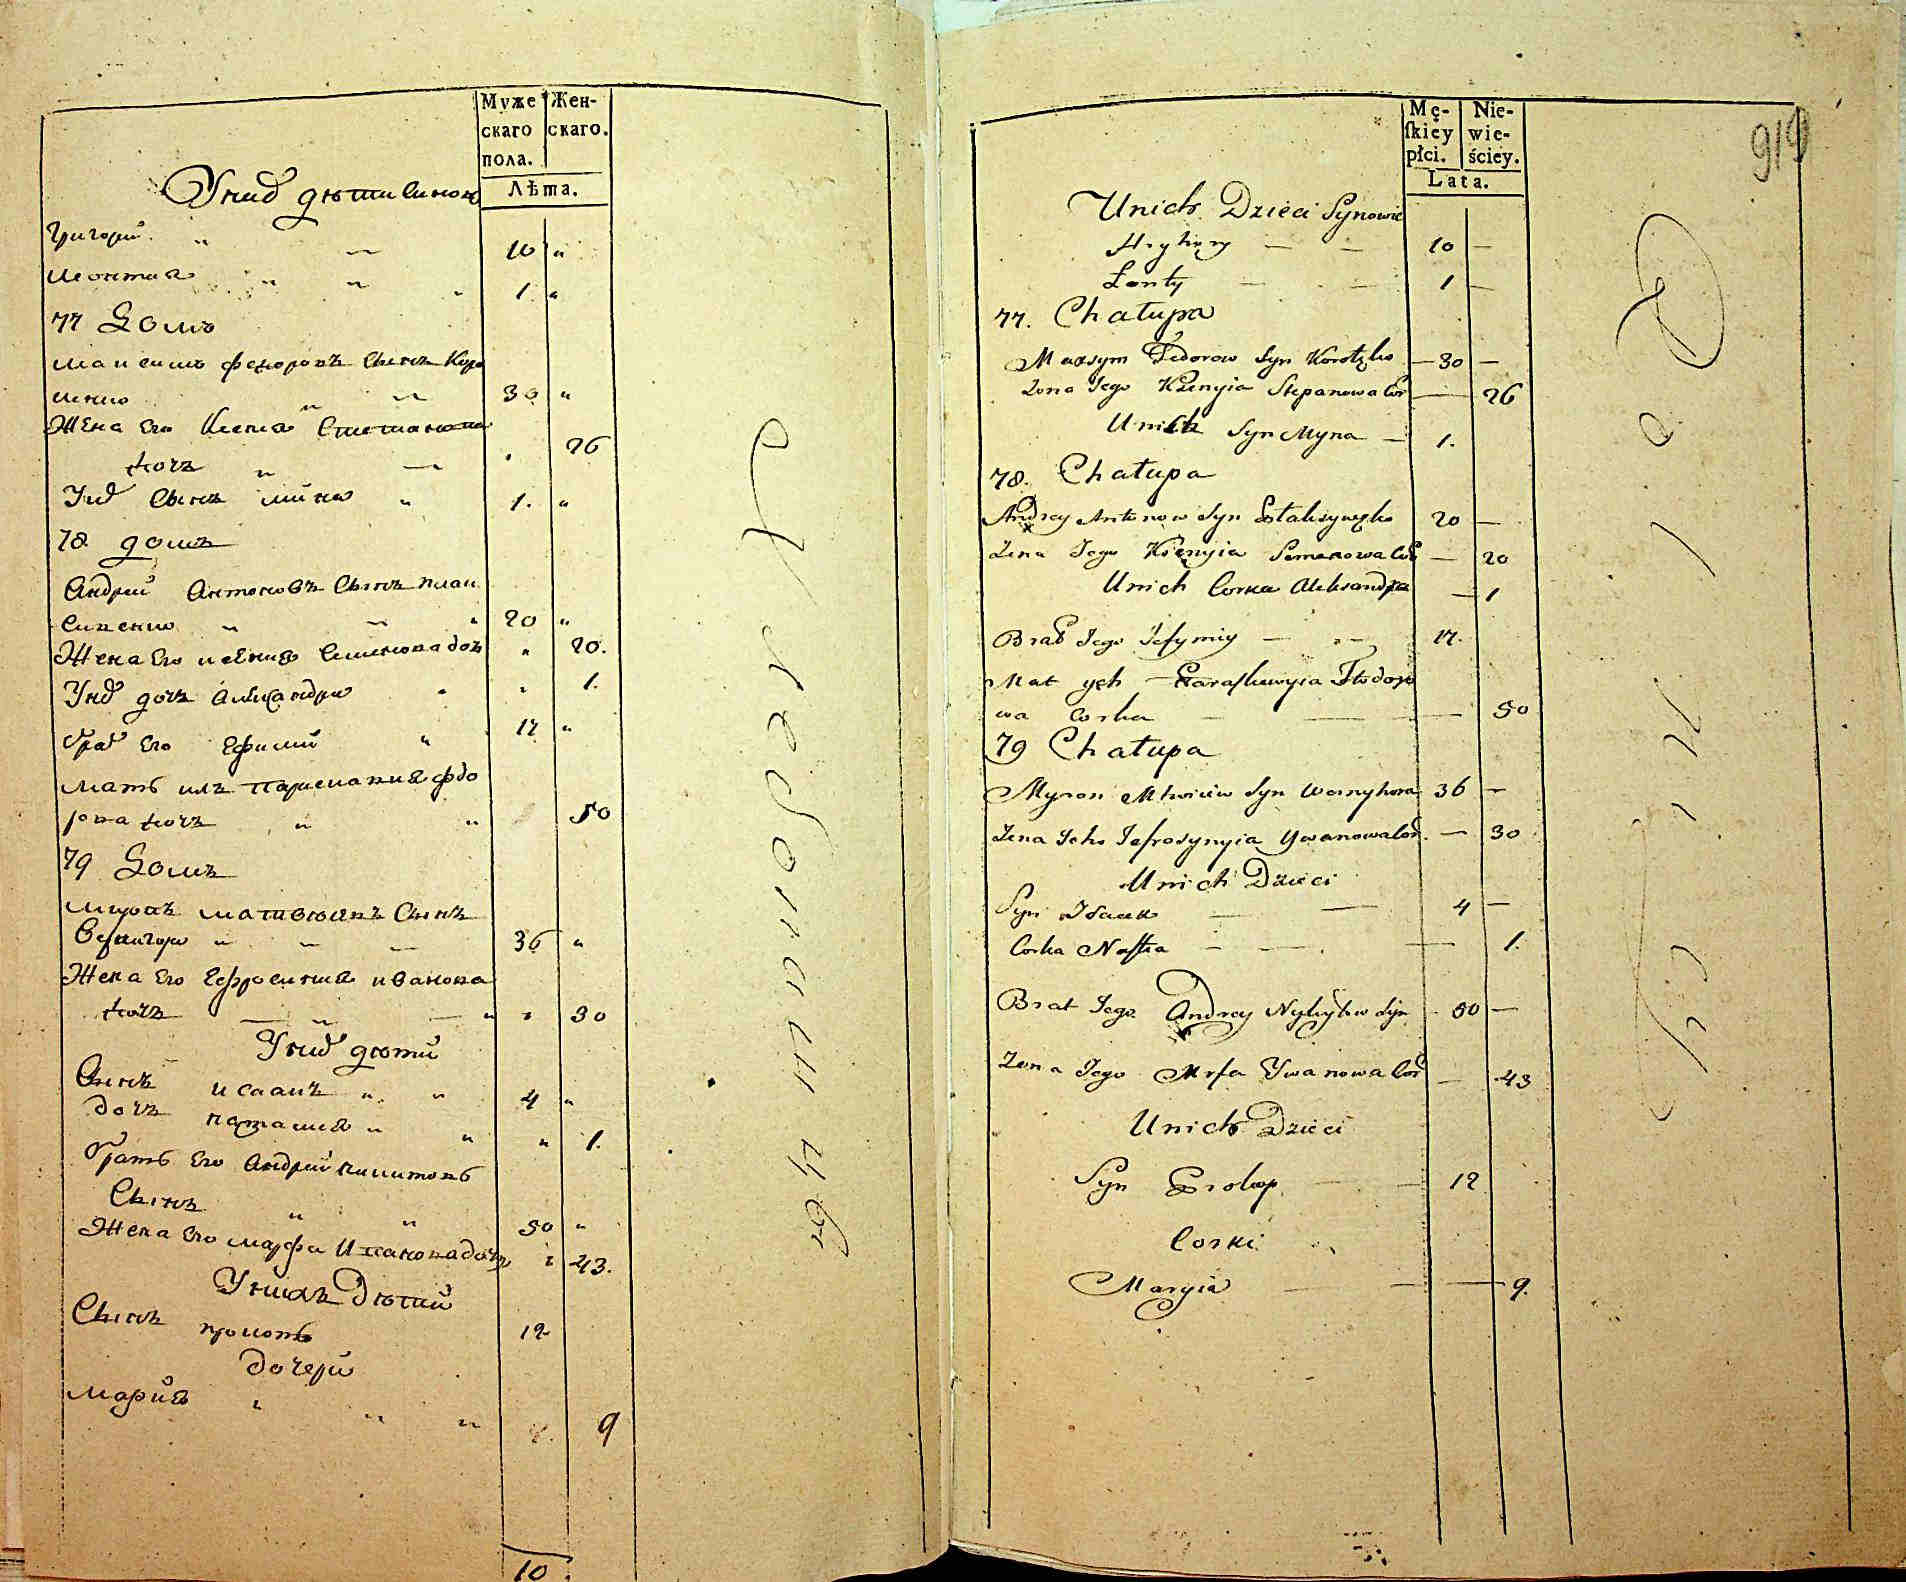 Муже Жен-
скаго скаго.
пола.
Лѣта.
Унихъ дѣти Синови
Григорий 10 "
Леонтий 1. "
77 Домъ
Максимъ Федоровъ Сынъ Коро
ценко 30 "
Жена Его Ксения Степанова
дочъ " 26
Унихъ Сынъ Мина 1. "
78 домъ
Андрей Антоновъ Сынъ Плак
сиценко 20 "
Жена Его Ксения Семенова дочъ " 20.
Унихъ дочъ Александра " 1.
братъ Его Ефимий 17 "
Мать ихъ Параскевия Фдо
рова дочъ 50
79 Домъ
Миронъ Матвѣевъ Сынъ
Вернигора 36 "
Жена Его Ефросиния Иванова
дочъ " 30
Унихъ дѣти
Сынъ Исаакъ 4 "
дочъ Наталия " 1.
братъ Его Андрей Никитовъ
Сынъ 50 "
Жена Его Марфа Иванова дочъ " 43.
Унихъ Дѣтий
Сынъ Прокопъ 12
дочери
Мария 9
10.
Mę- Nie-
ſkiey wie-
płci. ściey.
Lata.
919
Unich Dzieci Synowie
Hryhory — — 10 —
Lonty — — 1 —
77. Chałupa
Maxym Fedorow Syn Korotzko — 30 —
Zona Jego Xienyia Stepanowa Cor — 26
Unich Syn Myna — 1.
78. Chałupa
Andrey Antonow Syn 20 —
Zena Jego Ksienyia Semenowa Cor — 20
Unich Corka Aleksandra — 1
Brat Jego Jefymiy — — 17.
Mat ych Paraſkewyia Fiodoro
wa Corka — — — 50
79 Chałupa
Myron Matwiiew Syn Wernyhora 36 —
Zena Joho Jefrosynyia Ywanowa Cor. — 30
Unich Dzieci
Syn Isaak — — 4 —
Corka Naſtia — — — 1.
Brat Jego Andrey Nykytow Syn 50 —
Zona Jego Marfa Ywanowa Cor — 43
Unich Dzieci
Syn Prokop — — 12
Corki
Maryia — — — 9.